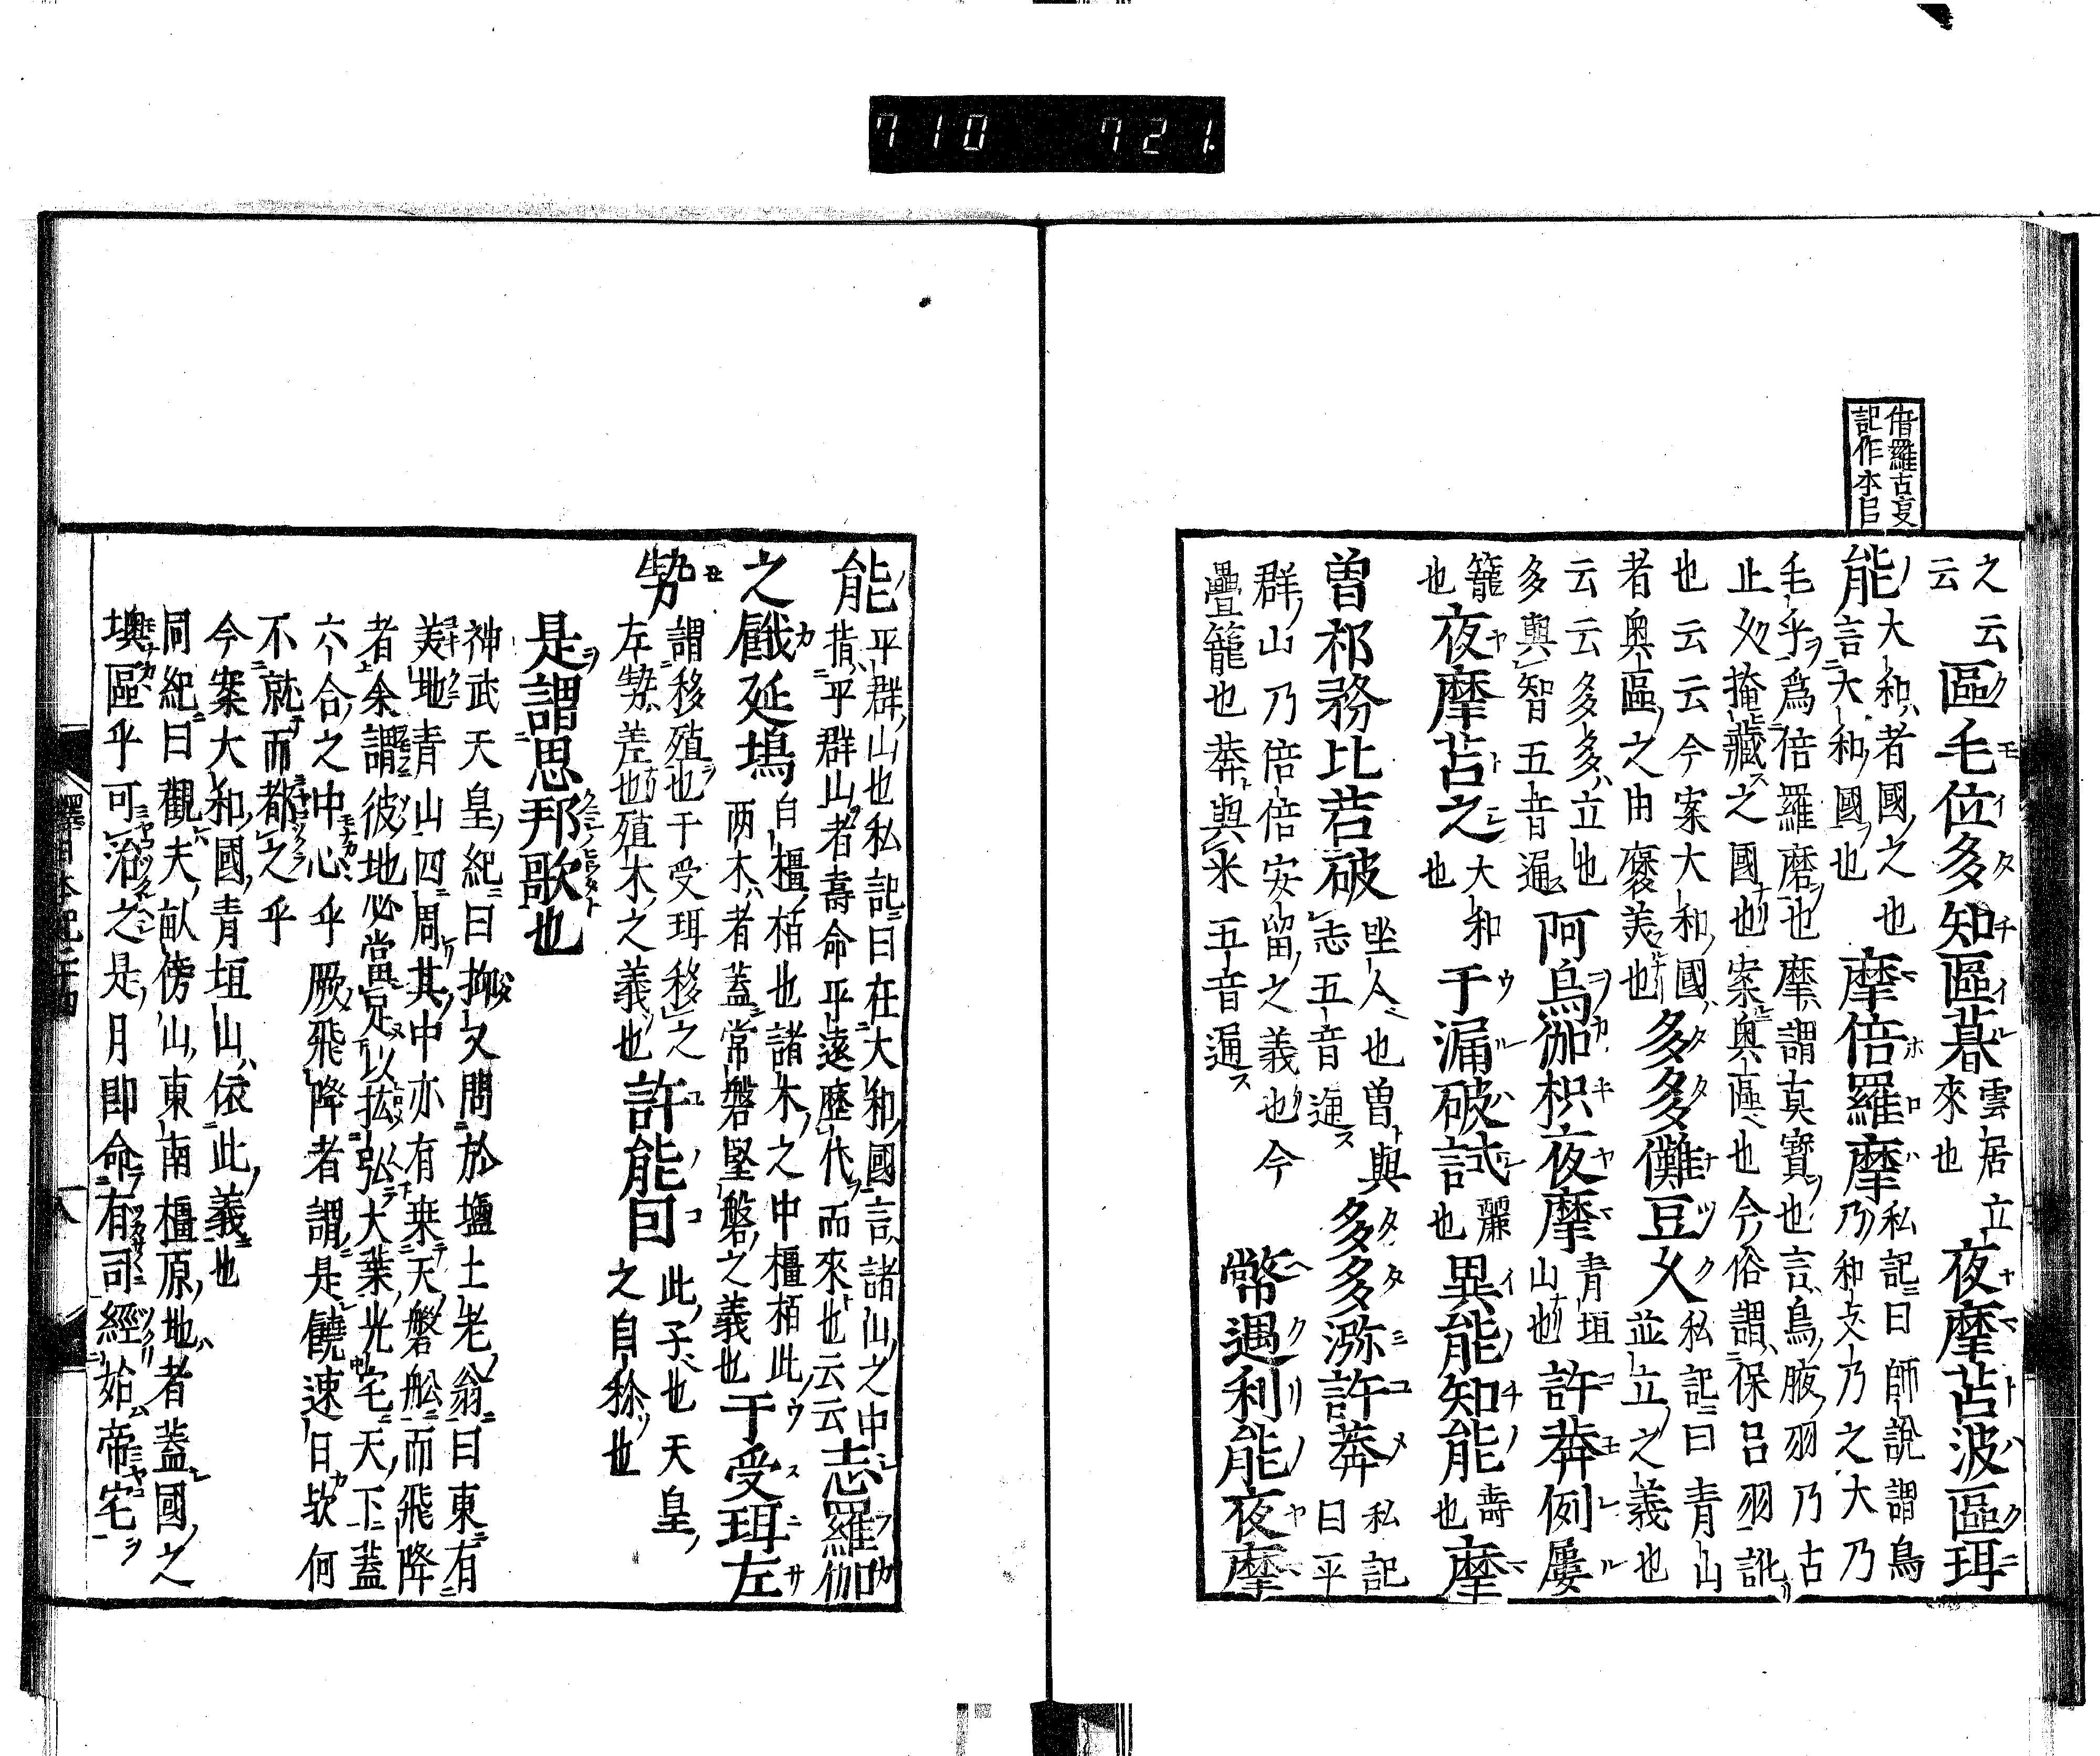 710 721.
倍羅古叓
記作本呂
之云區毛位多知區暮雲居立夜摩苫波區珥
云 來也
能大和者國之也摩倍羅摩私記曰師說謂鳥
言大和國也 乃和文乃之大乃
毛乎爲倍羅磨也摩謂真寶也言鳥腋羽乃古
止乂掩藏之國也案奥區也今俗謂保呂羽訛
也云云今案大和國多多儺豆乂私記曰青山
者奥區之由褒美也 並立之義也
云云多多立也阿烏伽枳夜摩青垣許莽例屢
多與智五音通 山也
籠夜摩苫之大和于漏破試麗異能知能壽摩
也 也 也 也
曽祁務比苫破坐人也曽與多多濔許莽私記
志五音通 曰平
群山乃倍倍安留之義也今幣遇利能夜摩
疊籠也莽與米五音通
能平群山也私記曰在大和國言諸仙之中志羅伽
指平群山者壽命平遠歴代而來也云云
之餓延塢自橿栢也諸木之中橿栢此于受珥左
両木者蓋常磐堅磐之義也
勢謂移殖也于受珥移之許能固此子也天皇
左勢差也殖木之義也 之自稱也
是謂思邦歌也
神武天皇紀曰抑又問於塩土老翁曰東有
美地青山四周其中亦有乗天磐舩而飛降
者余謂彼地必當足以恢弘大業光宅天下蓋
六合之中心乎厥飛降者謂是饒速日欤何
不就而都之乎
今案大和國青垣山依此義也
同紀曰觀夫畝傍山東南橿原地者蓋國之
墺區乎可治之是月即命有司經始帝宅